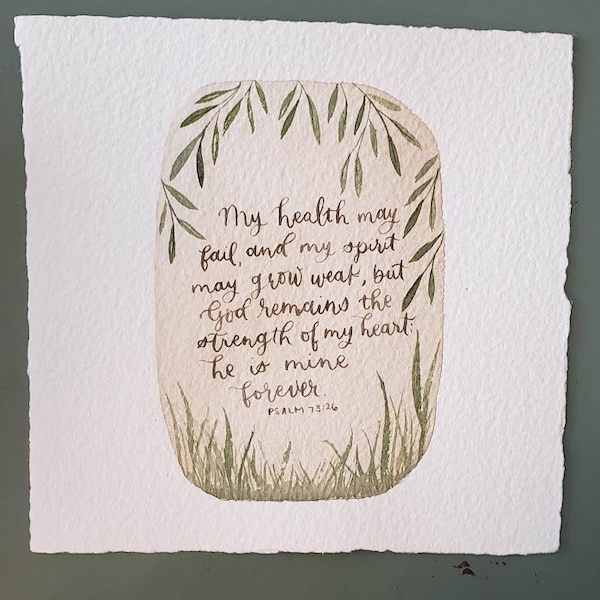 My health may
fail, and my spirit
may grow weak, but
God remains the
strength of my heart;
he is mine
forever.
PSALM 73:26